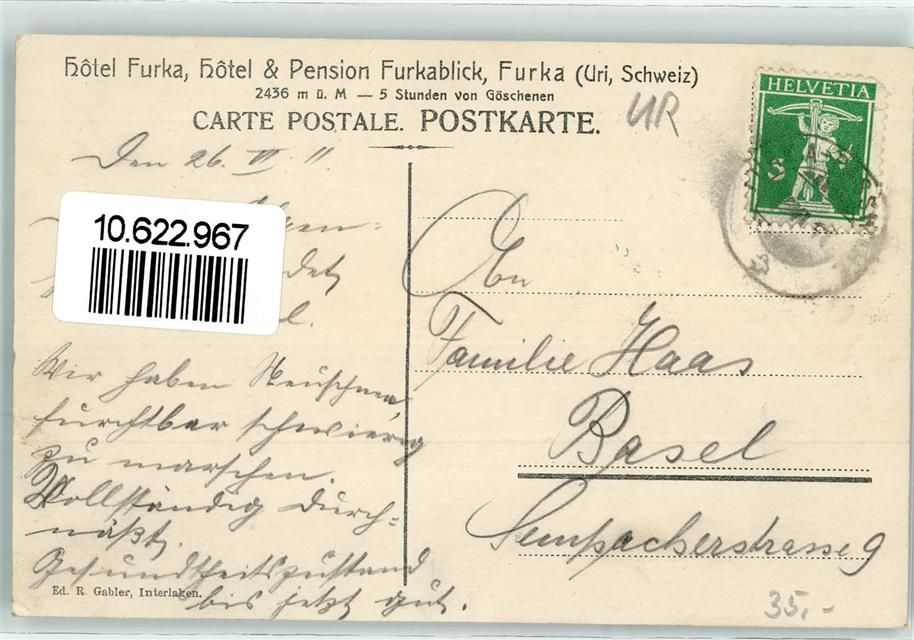 Hôtel Furka, Hôtel & Pension Furkablick, Furka (Uri, Schweiz)
2436 m ü. M — 5 Stunden von Göschenen
CARTE POSTALE. POSTKARTE.
UR
HELVETIA
5
Den 26. VI. 11
10.622.967
Wir haben Neuschnee,
furchtbar schwierig
zu marschen.
Vollständig durch=
näßt.
Gesundheitszustand
bis jetzt gut.
An
Familie Haas
Basel
Sempacherstrasse 9
Ed. R. Gabler, Interlaken.
35,-